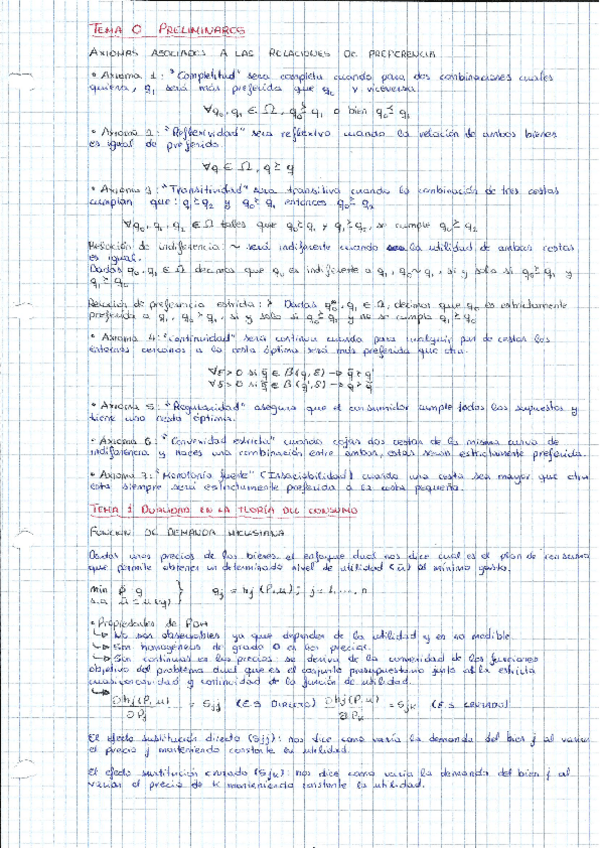 TEMA 0 PRELIMINARES
AXIOMAS ASOCIADOS A LAS RELACIONES DE PREFERENCIA
• Axioma 1: "Completitud" sera completa cuando para dos combinaciones cuales
quiera, q₁ será más preferida que q₂ y viceversa.
∀q₀, q₁ ∈ Ω, q₀ ≿ q₁ o bien q₀ ≾ q₁
• Axioma 2: "Reflexividad" sera reflexiva cuando la relación de ambos bienes
es igual de preferido.
∀q ∈ Ω, q ≿ q
• Axioma 3: "Transitividad" sera transitiva cuando la combinación de tres cestas
cumplan que: q₁ ≿ q₂ y q₀ ≿ q₁ entonces q₀ ≿ q₂
∀q₀, q₁, q₂ ∈ Ω tales que q₀ ≿ q₁ y q₁ ≿ q₂, se cumple q₀ ≿ q₂
Relación de indiferencia: ~ será indiferente cuando la utilidad de ambas cestas
es igual.
Dadas q₀, q₁ ∈ Ω decimos que q₀ es indiferente a q₁, q₀ ~ q₁, si y solo si q₀ ≿ q₁ y
q₁ ≿ q₀
Relación de preferencia estricta: ≻ Dadas q₀, q₁ ∈ Ω, decimos que q₀ es estrictamente
preferida a q₁, q₀ ≻ q₁, si y solo si q₀ ≿ q₁ y no se cumpla q₁ ≿ q₀
• Axioma 4: "Continuidad" será continua cuando para cualquier par de cestas los
entornos cercanos a la cesta óptima será más preferida que otra.
∀ε > 0 si q̄ ∈ B(q, ε) → q̄ ≻ q'
∀δ > 0 si q̄ ∈ B(q', δ) → q ≻ q̄
• Axioma 5: "Regularidad" asegura que el consumidor cumple todos los supuestos y
tiene una cesta óptima.
• Axioma 6: "Convexidad estricta" cuando cojas dos cestas de la misma curva de
indiferencia y haces una combinación entre ambas, estas seran estrictamente preferida.
• Axioma 7: "Monotonía fuerte" (Insaciabilidad) cuando una cesta sea mayor que otra
esta siempre será estrictamente preferida a la cesta pequeña.
TEMA 1 DUALIDAD EN LA TEORÍA DEL CONSUMO
FUNCIÓN DE DEMANDA HICKSIANA
Dados unos precios de los bienes, el enfoque dual nos dice cual es el plan de consumo
que permite obtener un determinado nivel de utilidad (ū) al mínimo gasto.
min p q } qⱼ = hⱼ (P, u); j = 1, ..., n
s.a ū = u(q)
• Propiedades de
↳ No son observables ya que dependen de la utilidad y es no medible.
↳ Son homogéneas de grado 0 en los precios.
↳ Son continuas en los precios: se deriva de la convexidad de las funciones
objetivo del problema dual que es el conjunto presupuestario junto a la estricta
cuasiconcavidad y continuidad de la función de utilidad.
↳ ∂hⱼ(P, u)/∂Pⱼ = Sⱼⱼ (ES DIRECTO) ∂hⱼ(P, u)/∂Pₖ = Sⱼₖ (ES CRUZADO)
El efecto sustitución directo (Sⱼⱼ): nos dice como varía la demanda del bien j al variar
el precio y manteniendo constante su utilidad.
El efecto sustitución cruzado (Sⱼₖ): nos dice como varía la demanda del bien j al
variar el precio de K manteniendo constante la utilidad.